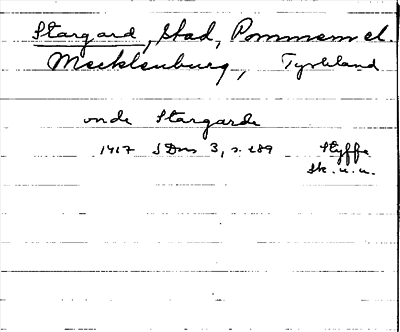 Stargard, Stad, Pommern el.
Mecklenburg, Tyskland
onde Stargarde
1417 SDns 3, s. 289 Styffe
Sk. u. u.